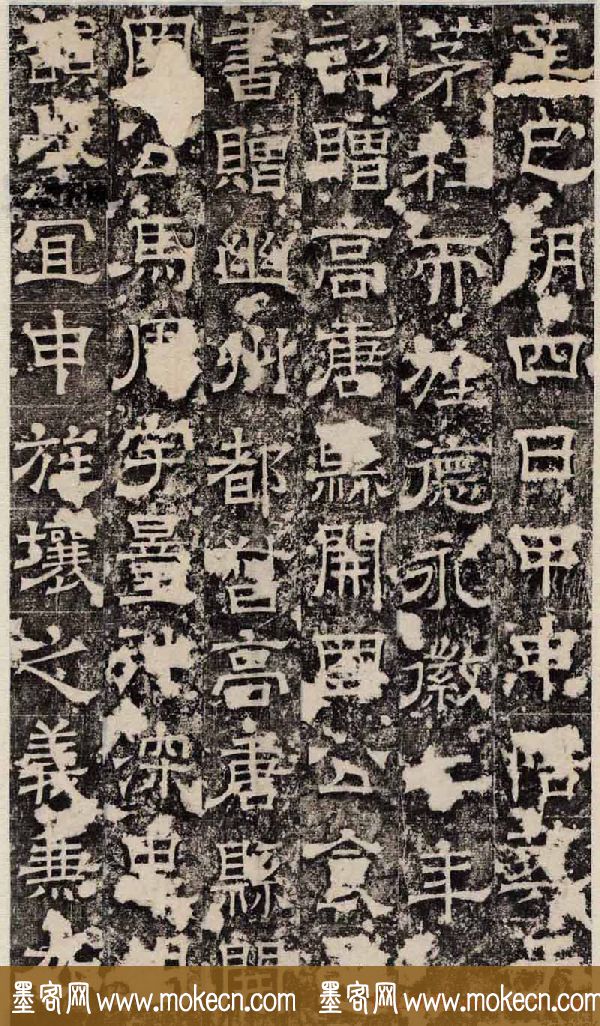 辛巳朔四日甲申陪葬
茅社而旌德永徽年
詔贈高唐縣開國公食
書贈幽州都督高唐縣開
國公馬周宇量深
宜申旌壤之義兼
墨客网 www.mokecn.com 墨客网 www.mokecn.com